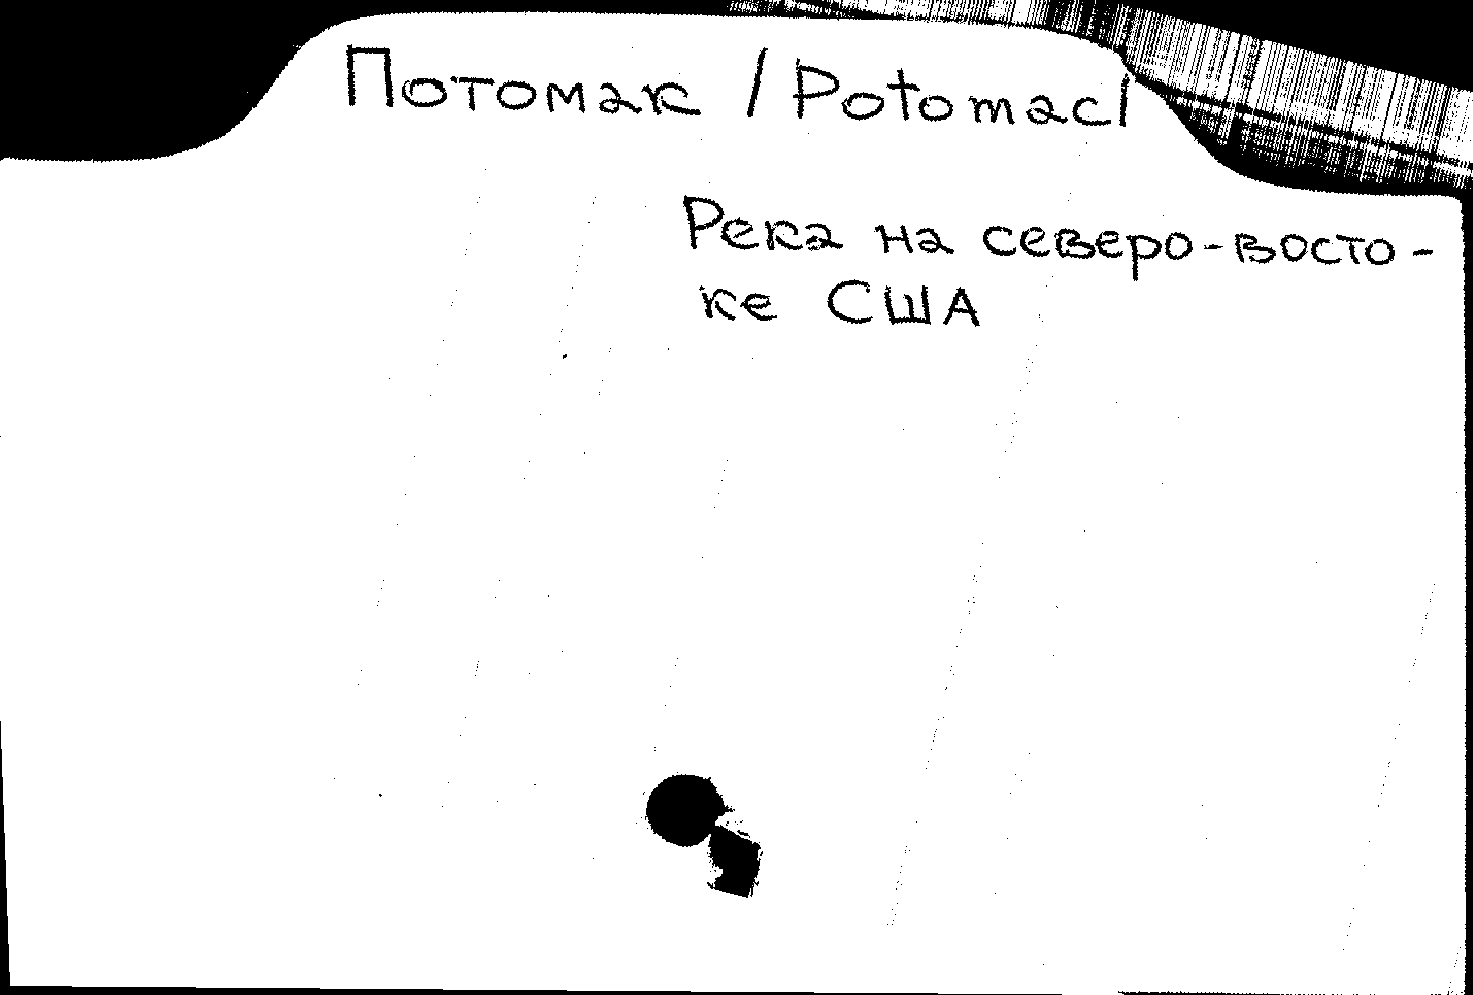 Потомак / Potomac/
Река на северо-восто-
ке США